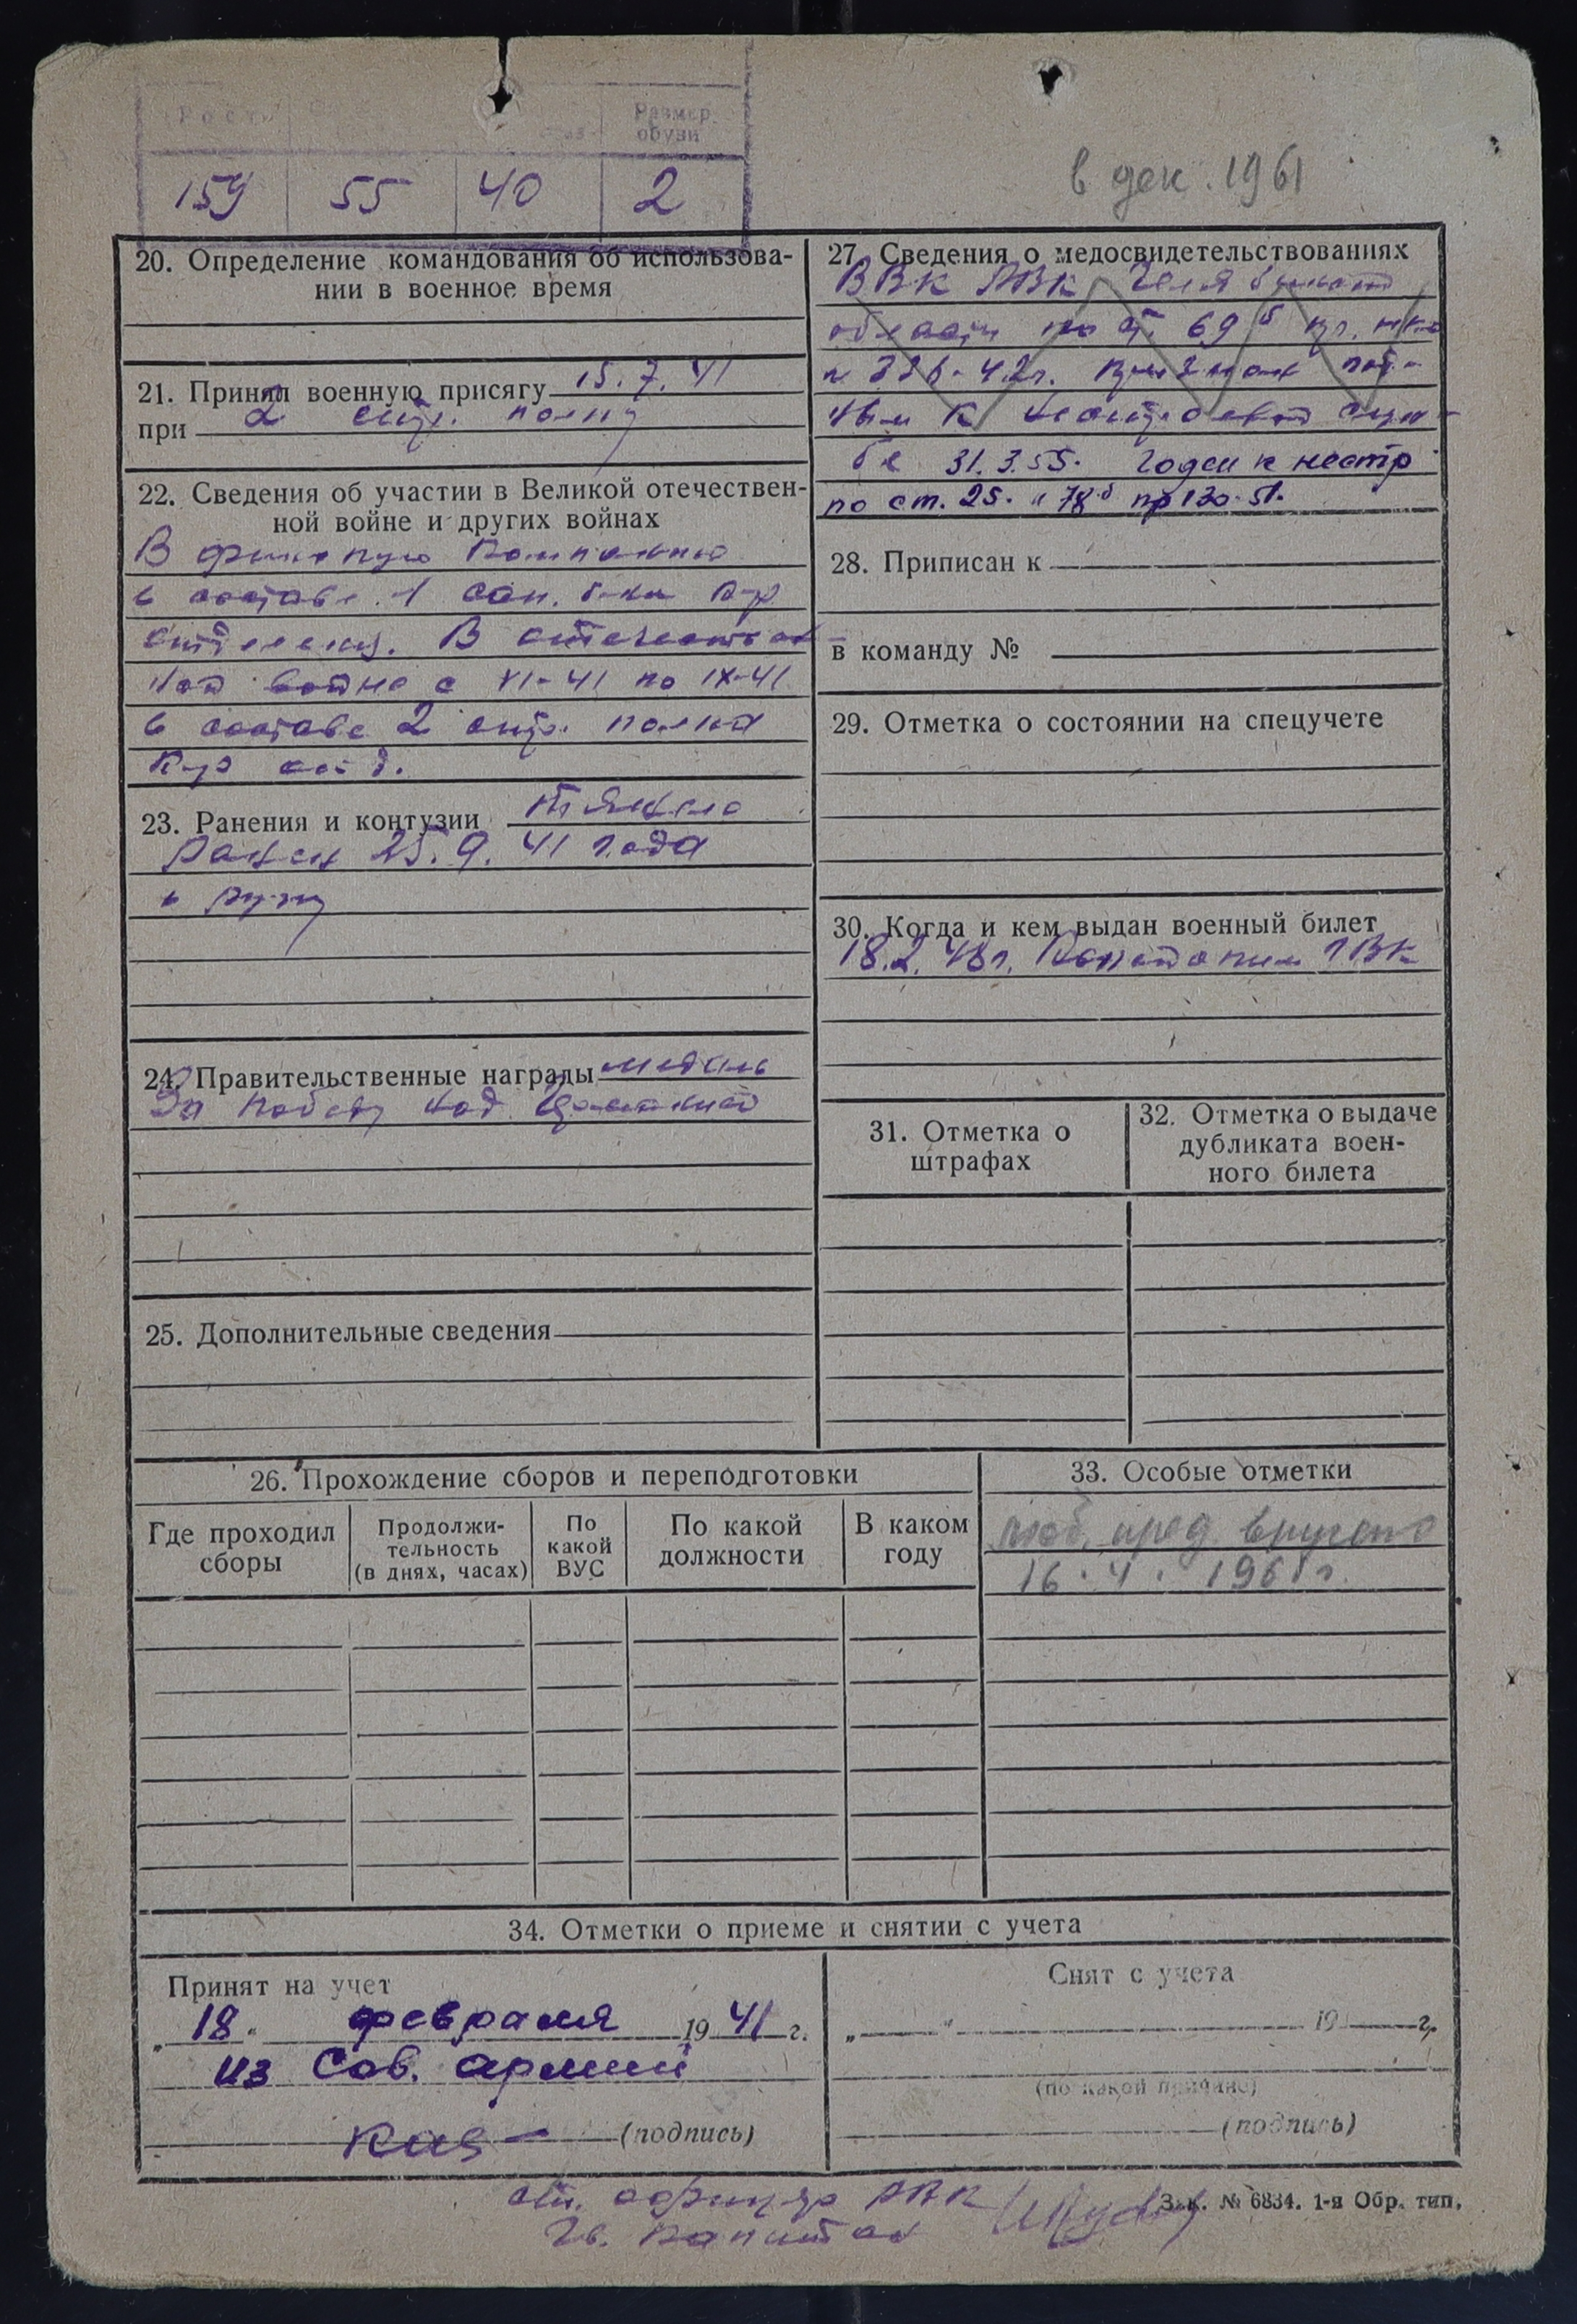 Рост
Размер
обуви
159 55 40 2
в дек. 1961
20. Определение командования об использова-
нии в военное время
21. Принял военную присягу 15.7.41
при 2 стр. полку
22. Сведения об участии в Великой отечествен-
ной войне и других войнах
В финскую Компанию
в составе 1 сан. б-на
отделения. В отечествен
ной войне с VI-41 по IX-41
в составе 2 стр. полка
отд.
23. Ранения и контузии тяжело
ранен 25.9.41 года
в руку
24. Правительственные награды медаль
За победу над Германией
25. Дополнительные сведения
27. Сведения о медосвидетельствованиях
ВВК РВК Челябинской
области по ст. 69 б пр. НКО
№ 336-42г. Признан год-
ным к нестроевой служ-
бе 31.3.55. Годен к нестр
по ст. 25. и 78 б пр 130-51.
28. Приписан к
в команду №
29. Отметка о состоянии на спецучете
30. Когда и кем выдан военный билет
18.2.48г. ГВК
31. Отметка о
штрафах
32. Отметка о выдаче
дубликата воен-
ного билета
26. Прохождение сборов и переподготовки
Где проходил
сборы
Продолжи-
тельность
(в днях, часах)
По
какой
ВУС
По какой
должности
В каком
году
33. Особые отметки
моб. пред. вручено
16.4.1961г.
34. Отметки о приеме и снятии с учета
Принят на учет
„18" февраля 1941 г.
из Сов. армии
(подпись)
Снят с учета
„ " 19 г.
(по какой причине)
(подпись)
Зак. № 6834. 1-я Обр. тип.
ст. офицер РВК
Гв. Капитан